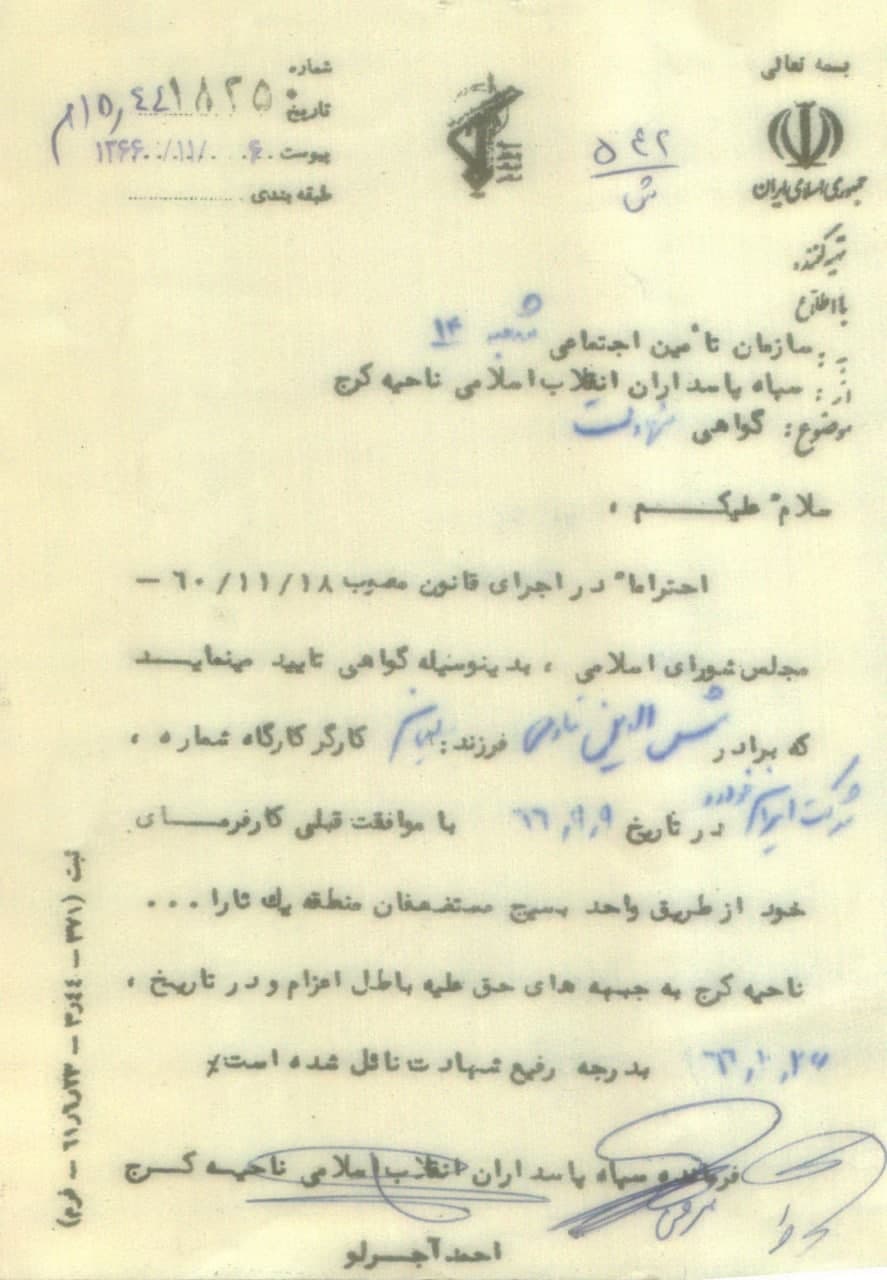 بسمه تعالی
جمهوری اسلامی ایران
شماره ۱۵٫۴۴۱۸۲۵
تاریخ
پیوست ۱۳۶۶/۱۱/۰۶
طبقه بندی
۵۴۲
ش
با اطلاع
به : سازمان تأمین اجتماعی شعبه ۱۴
از : سپاه پاسداران انقلاب اسلامی ناحیه کرج
موضوع : گواهی شهادت
سلام" علیکم ،
احتراما" در اجرای قانون مصوب ۶۰/۱۱/۱۸ –
مجلس شورای اسلامی ، بدینوسیله گواهی تایید مینماید
که برادر شمس الدین فرزند : کارگر کارگاه شماره ،
شرکت ایران خودرو در تاریخ ۶۶٫۹٫۹ با موافقت قبلی کارفرمای
خود از طریق واحد بسیج مستضعفان منطقه یك ثارا ...
ناحیه کرج به جبهه های حق علیه باطل اعزام و در تاریخ ،
بدرجه رفیع شهادت نائل شده است٪
فرمانده سپاه پاسداران انقلاب اسلامی ناحیه کرج
احمد آجرلو
ثبت (۳۷۱ – ۳٫۴۴ – ۶۱٫۶٫۲۳ – فرم)